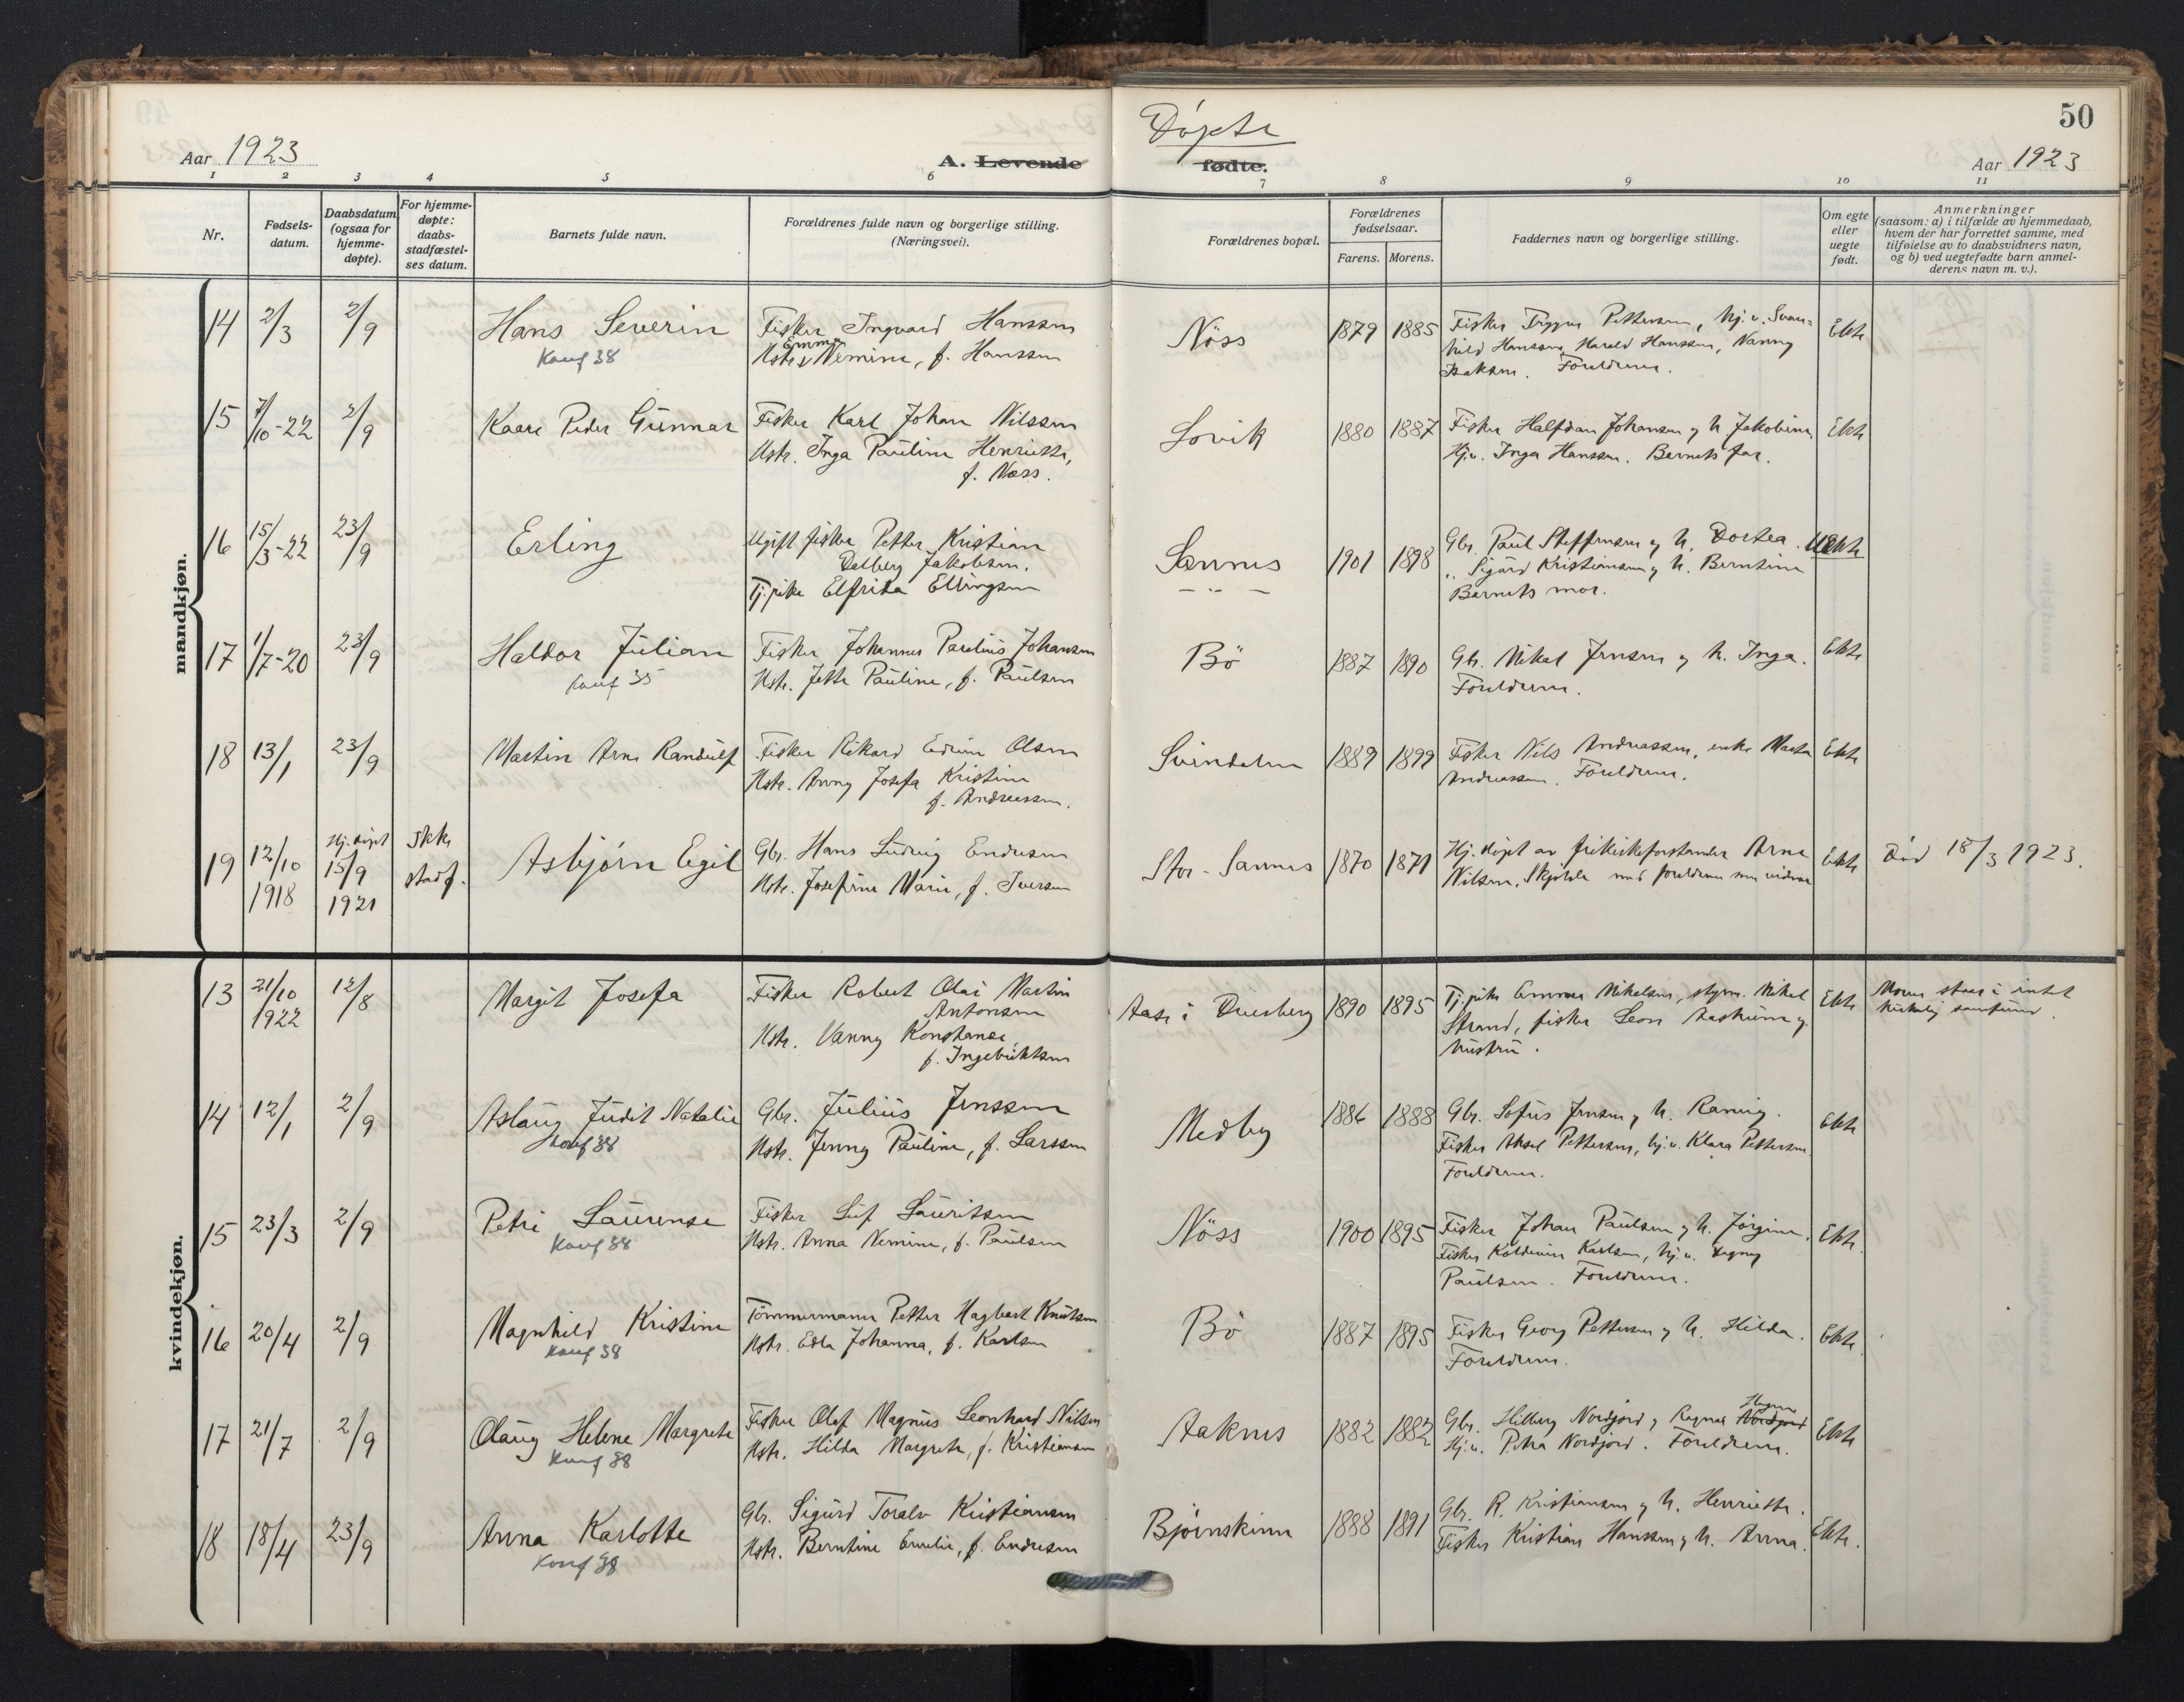 50
Døpte
Aar 1923
A. Levende
fødte.
Aar 1923
1 2 3 4 5 6 7 8 9 10 11
Nr.
Fødsels-datum.
Daabsdatum (ogsaa for hjemme-døpte).
For hjemme-døpte: daabs-stadfæstel-ses datum.
Barnets fulde navn.
Forældrenes fulde navn og borgerlige stilling. (Næringsvei).
Forældrenes bopæl.
Forældrenes fødselsaar.
Farens. Morens.
Faddernes navn og borgerlige stilling.
Om egte eller uegte født.
Anmerkninger (saasom: a) i tilfælde av hjemmedaab, hvem der har forrettet samme, med tilføielse av to daabsvidners navn, og b) ved uegtefødte barn anmel-derens navn m. v.).
mandkjøn.
14 2/3 2/9 Hans Severin Fisker Ingvard Hanssen Nöss 1879 1885 Fisker Trygve Pettersen, hj. v. Svan-
Konf 38 Hstr. Emma Nemine, f. Hanssen hild Hanssen, Harald Hanssen, Nanny
Isaksen. Foreldrene. Ekte
15 7/10-22 2/9 Kaare Peder Gunnar Fisker Karl Johan Nilssen Lovik 1880 1887 Fisker Halfdan Johansen og h. Jakobine, Ekte
Hstr. Inga Pauline Henriette, Hj.v. Inga Hanssen. Barnets far.
f. Næss.
16 15/3-22 23/9 Erling Ugift fisker Petter Kristian Sannes 1901 1898 Gbr. Paul Steffensen og h. Dortea. Uekte
Dalberg Jakobsen. " Sigurd Kristiansen og h. Berntine
Tj.pike Elfrida Ellingsen Barnets mor.
17 1/7-20 23/9 Haldor Julian Fisker Johannes Paulius Johansen Bö 1887 1890 Gbr. Mikal Jensen og h. Inga. Ekte
Konf 35 Hstr. Jette Pauline, f. Paulsen Foreldrene.
18 13/1 23/9 Martin Arne Randulf Fisker Rikard Edvin Olsen 1889 1899 Fisker Nils Andreassen, enke Marta Ekte
Hstr. Anny Josefa Kristine Andreassen. Foreldrene.
f. Andreassen.
19 12/10 1918 Hj.døpt 15/9 1921 Ikke stadf. Asbjørn Egil Gbr. Hans Ludvig Endresen Stor-Sannes 1870 1871 Hj. døpt av frikirkeforstander Arne Ekte Död 18/3 1923.
Hstr. Josefine Marie, f. Iversen Nilsen, Skjolde med foreldrene som vidner
kvindekjøn.
13 21/10 1922 12/8 Margit Josefa Fisker Robert Olai Martin Aase i 1890 1895 Tj. pike Emma Mikelsen, styrm. Mikal Ekte Moren staar i intet
Antonsen Strand, fisker Leon og kirkelig samfund.
Hstr. Vanny Konstanse, hustru.
f. Ingebriktsen
14 12/1 2/9 Aslaug Judit Natalie Gbr. Julius Jenssen Medby 1886 1888 Gbr. Sofus Jensen og h. Ekte
Konf 38 Hstr. Jenny Pauline, f. Larssen Fisker Aksel Pettersen, hj.v. Klara Pettersen.
Foreldrene.
15 23/3 2/9 Petri Laurense Fisker Leif Lauritsen Nöss 1900 1895 Fisker Johan Paulsen og h. Jørgine. Ekte.
Konf 38 Hstr. Anna Nemine, f. Paulsen Fisker Karlsen, hj. v. Dagny
Paulsen. Foreldrene.
16 20/4 2/9 Magnhild Kristine Tømmermann Petter Hagbart Knutsen Bö 1887 1895 Fisker Georg Pettersen og h. Hilda. Ekte.
Konf 38 Hstr. Edla Johanna, f. Karlsen Foreldrene.
17 21/7 2/9 Olaug Helene Margrete Fisker Olaf Magnus Leonhard Nilsen Aaknes 1882 1882 Gbr. Hilberg Nordjord og Ragnar Nordjord Ekte
Konf 38 Hstr. Hilda Margrete, f. Kristiansen Hj.v. Petra Nordjord. Foreldrene.
18 18/4 23/9 Anna Karlotte Gbr. Sigurd Toralv Kristiansen Bjørnskinn 1888 1891 Gbr. R. Kristiansen og h. Henriette. Ekte.
Konf 38 Hstr. Berntine Emelie, f. Endresen Fisker Kristian Hanssen og h. Anna.